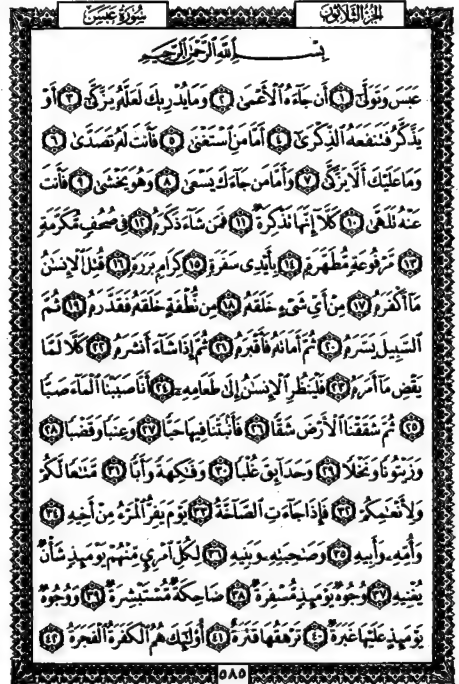 سورة عبس
الجزء الثلاثون
بسم الله الرحمن الرحيم
عَبَسَ وَتَوَلَّىٰٓ ١ أَن جَآءَهُ ٱلْأَعْمَىٰ ٢ وَمَا يُدْرِيكَ لَعَلَّهُۥ يَزَّكَّىٰٓ ٣ أَوْ
يَذَّكَّرُ فَتَنفَعَهُ ٱلذِّكْرَىٰٓ ٤ أَمَّا مَنِ ٱسْتَغْنَىٰ ٥ فَأَنتَ لَهُۥ تَصَدَّىٰ ٦
وَمَا عَلَيْكَ أَلَّا يَزَّكَّىٰ ٧ وَأَمَّا مَن جَآءَكَ يَسْعَىٰ ٨ وَهُوَ يَخْشَىٰ ٩ فَأَنتَ
عَنْهُ تَلَهَّىٰ ١٠ كَلَّآ إِنَّهَا تَذْكِرَةٌ ١١ فَمَن شَآءَ ذَكَرَهُۥ ١٢ فِى صُحُفٍ مُّكَرَّمَةٍ
١٣ مَّرْفُوعَةٍ مُّطَهَّرَةٍۭ ١٤ بِأَيْدِى سَفَرَةٍ ١٥ كِرَامٍۭ بَرَرَةٍ ١٦ قُتِلَ ٱلْإِنسَٰنُ
مَآ أَكْفَرَهُۥ ١٧ مِنْ أَىِّ شَىْءٍ خَلَقَهُۥ ١٨ مِن نُّطْفَةٍ خَلَقَهُۥ فَقَدَّرَهُۥ ١٩ ثُمَّ
ٱلسَّبِيلَ يَسَّرَهُۥ ٢٠ ثُمَّ أَمَاتَهُۥ فَأَقْبَرَهُۥ ٢١ ثُمَّ إِذَا شَآءَ أَنشَرَهُۥ ٢٢ كَلَّا لَمَّا
يَقْضِ مَآ أَمَرَهُۥ ٢٣ فَلْيَنظُرِ ٱلْإِنسَٰنُ إِلَىٰ طَعَامِهِۦٓ ٢٤ أَنَّا صَبَبْنَا ٱلْمَآءَ صَبًّا
٢٥ ثُمَّ شَقَقْنَا ٱلْأَرْضَ شَقًّا ٢٦ فَأَنۢبَتْنَا فِيهَا حَبًّا ٢٧ وَعِنَبًا وَقَضْبًا ٢٨
وَزَيْتُونًا وَنَخْلًا ٢٩ وَحَدَآئِقَ غُلْبًا ٣٠ وَفَٰكِهَةً وَأَبًّا ٣١ مَّتَٰعًا لَّكُمْ
وَلِأَنْعَٰمِكُمْ ٣٢ فَإِذَا جَآءَتِ ٱلصَّآخَّةُ ٣٣ يَوْمَ يَفِرُّ ٱلْمَرْءُ مِنْ أَخِيهِ ٣٤
وَأُمِّهِۦ وَأَبِيهِ ٣٥ وَصَٰحِبَتِهِۦ وَبَنِيهِ ٣٦ لِكُلِّ ٱمْرِئٍ مِّنْهُمْ يَوْمَئِذٍ شَأْنٌ
يُغْنِيهِ ٣٧ وُجُوهٌ يَوْمَئِذٍ مُّسْفِرَةٌ ٣٨ ضَاحِكَةٌ مُّسْتَبْشِرَةٌ ٣٩ وَوُجُوهٌ
يَوْمَئِذٍ عَلَيْهَا غَبَرَةٌ ٤٠ تَرْهَقُهَا قَتَرَةٌ ٤١ أُو۟لَٰٓئِكَ هُمُ ٱلْكَفَرَةُ ٱلْفَجَرَةُ ٤٢
٥٨٥